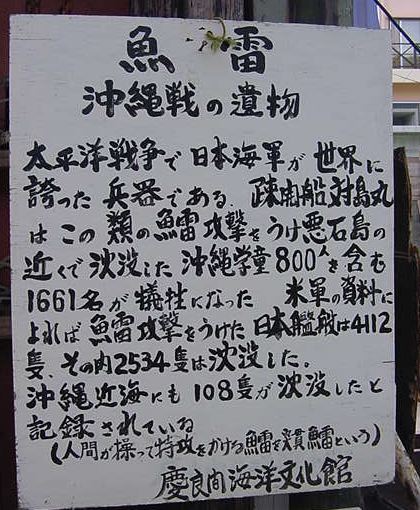 魚雷
沖縄戦の遺物
太平洋戦争で日本海軍が世界に
誇った兵器である。疎開船対馬丸
はこの類の魚雷攻撃をうけ悪石島の
近くで沈没した沖縄学童800人を含む
1661名が犠牲になった 米軍の資料に
よれば魚雷攻撃をうけた日本艦船は4112
隻、その内2534隻は沈没した。
沖縄近海にも108隻が沈没したと
記録されている
(人間が操って特攻をかける魚雷を 魚雷という)
慶良間海洋文化館